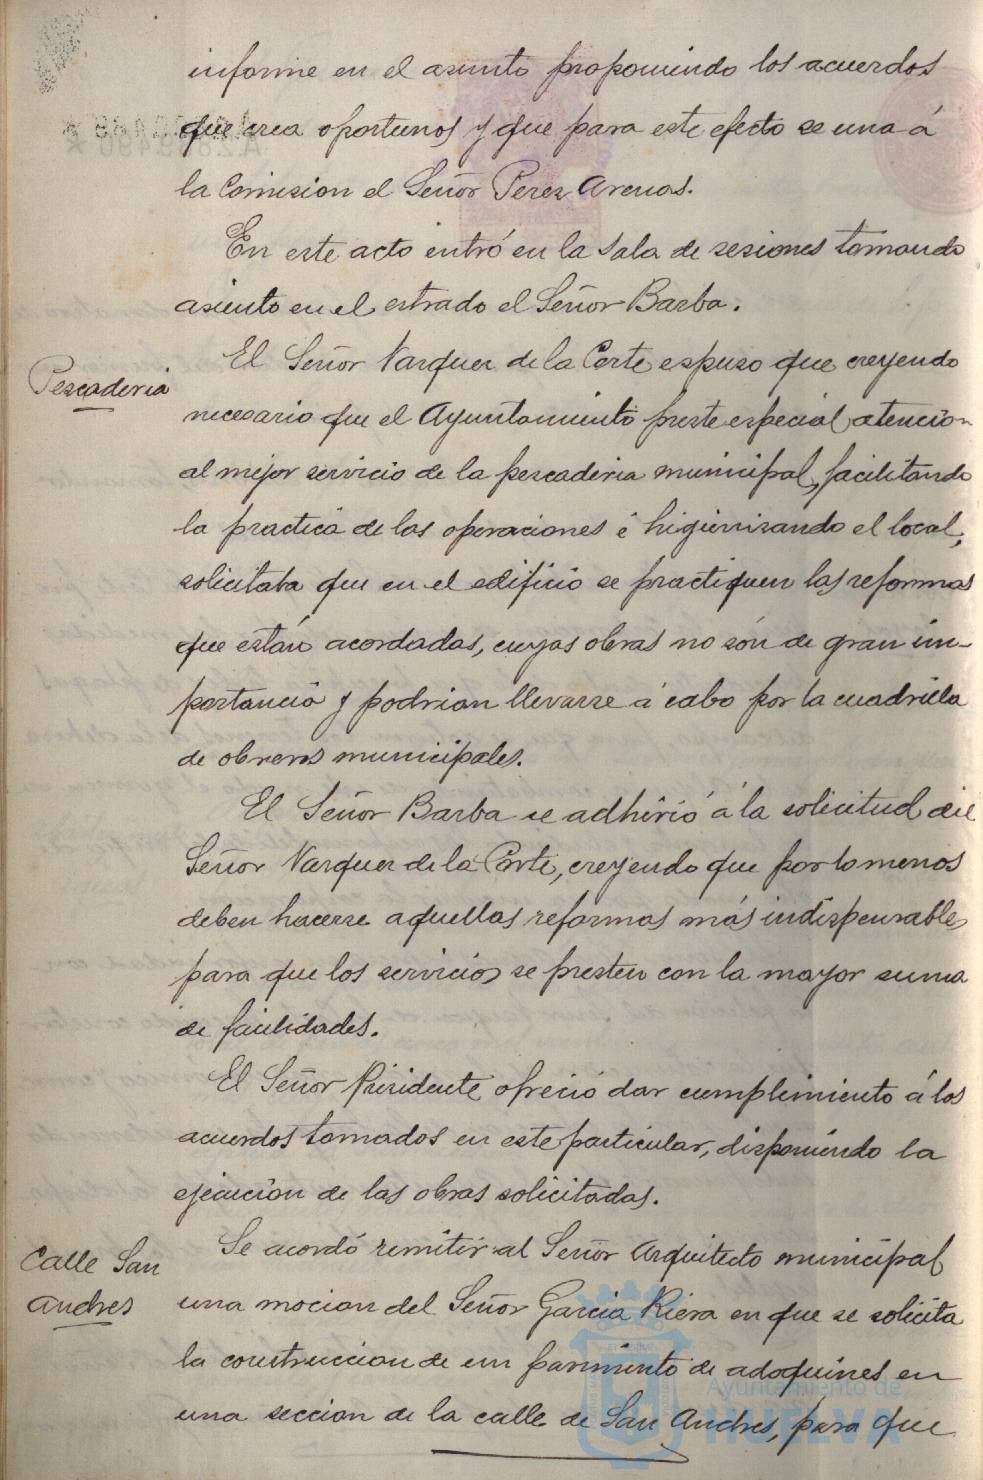 informe en el asunto proponiendo los acuerdos
que crea oportunos y que para este efecto se una á
la Comision el Señor Perez Arenas.
En este acto entró en la Sala de sesiones tomando
asiento en el estrado el Señor Barba.
Pescaderia
El Señor Vazquez de la Corte espuso que creyendo
necesario que el Ayuntamiento preste especial atencion
al mejor servicio de la pescaderia municipal, facilitando
la practica de las operaciones é higienizando el local,
solicitaba que en el edificio se practiquen las reformas
que están acordadas, cuyas obras no són de gran im-
portancia y podrian llevarse á cabo por la cuadrilla
de obreros municipales.
El Señor Barba se adhirió á la solicitud del
Señor Vazquez de la Corte, creyendo que por lo menos
deben hacerse aquellas reformas más indispensables
para que los servicios se presten con la mayor suma
de facilidades.
El Señor Presidente ofreció dar cumplimiento á los
acuerdos tomados en este particular, disponiendo la
ejecucion de las obras solicitadas.
Calle San
Andres
Se acordó remitir al Señor Arquitecto municipal
una mocion del Señor Garcia Riera en que se solicita
la construccion de un pavimento de adoquines en
una seccion de la calle de San Andres, para que
Ayuntamiento de
HUELVA